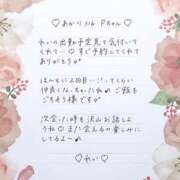 ♡ あかり 116 Pちゃん ♡
れいの出勤予定見て気付いて
くれて…♡ すぐ予約してくれて
ありがとう♡
ほんとに2回目…?ってくらい
仲良くなっちゃったね♪ ご飯も
ごちそう様です♡
次会った時も沢山お話しよ
うね♡ また会えるの楽しみに
してるよ~♪
♡ れい ♡